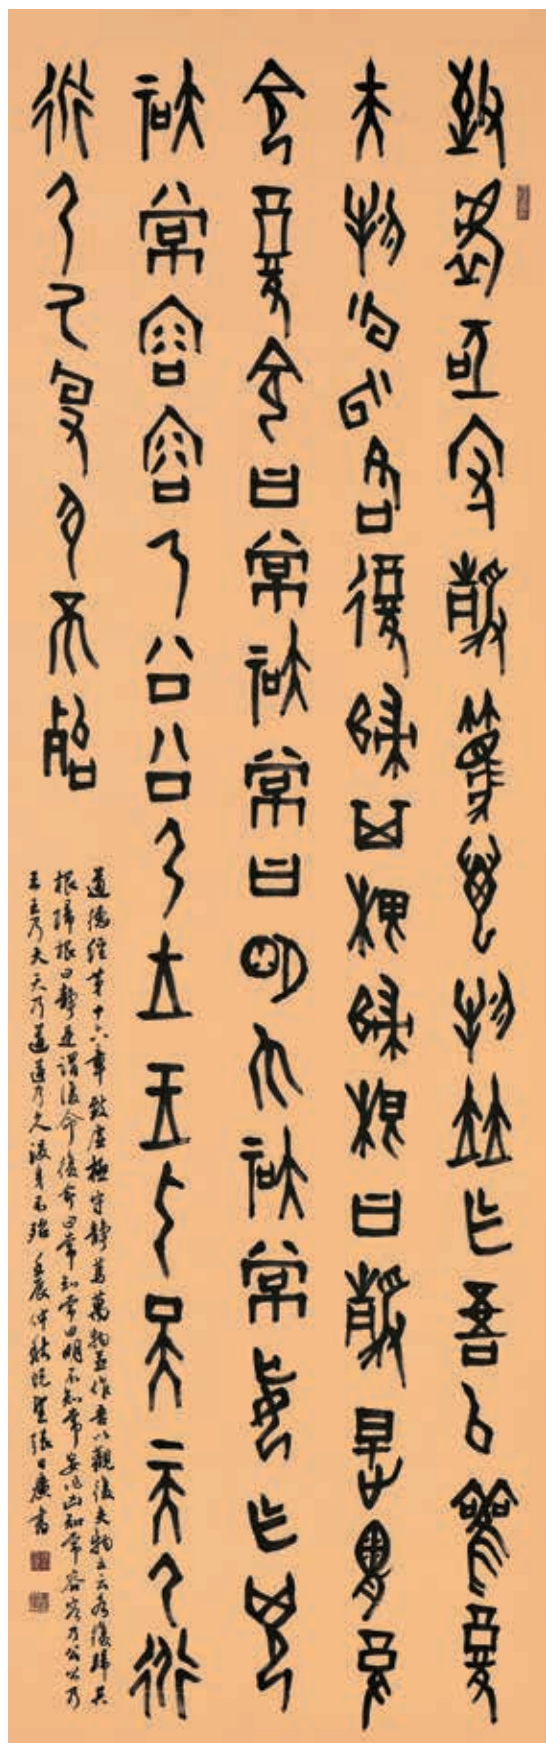 致虛亟守靜篤萬物並作吾以觀復
夫物云云各復歸其根歸根曰靜是胃復
命復命曰常知常曰明不知常妄作凶
知常容容乃公公乃王王乃天天乃道
道乃久沒身不殆
道德經第十六章致虛極守靜篤萬物並作吾以觀復夫物云云各復歸其
根歸根曰靜是謂復命復命曰常知常曰明不知常妄作凶知常容容乃公公乃
王王乃天天乃道道乃久沒身不殆壬辰仲秋張日廣書